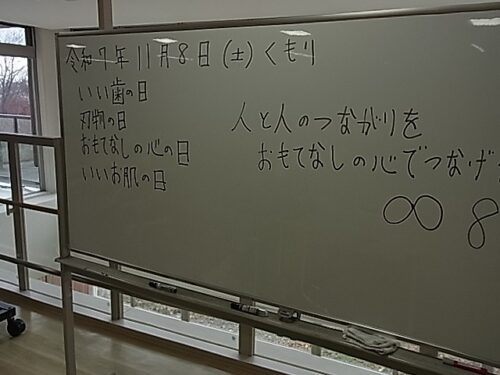 令和7年11月8日(土)くもり
いい歯の日
刃物の日
おもてなしの心の日
いいお肌の日
人と人のつながりを
おもてなしの心でつなげ
∞ 8